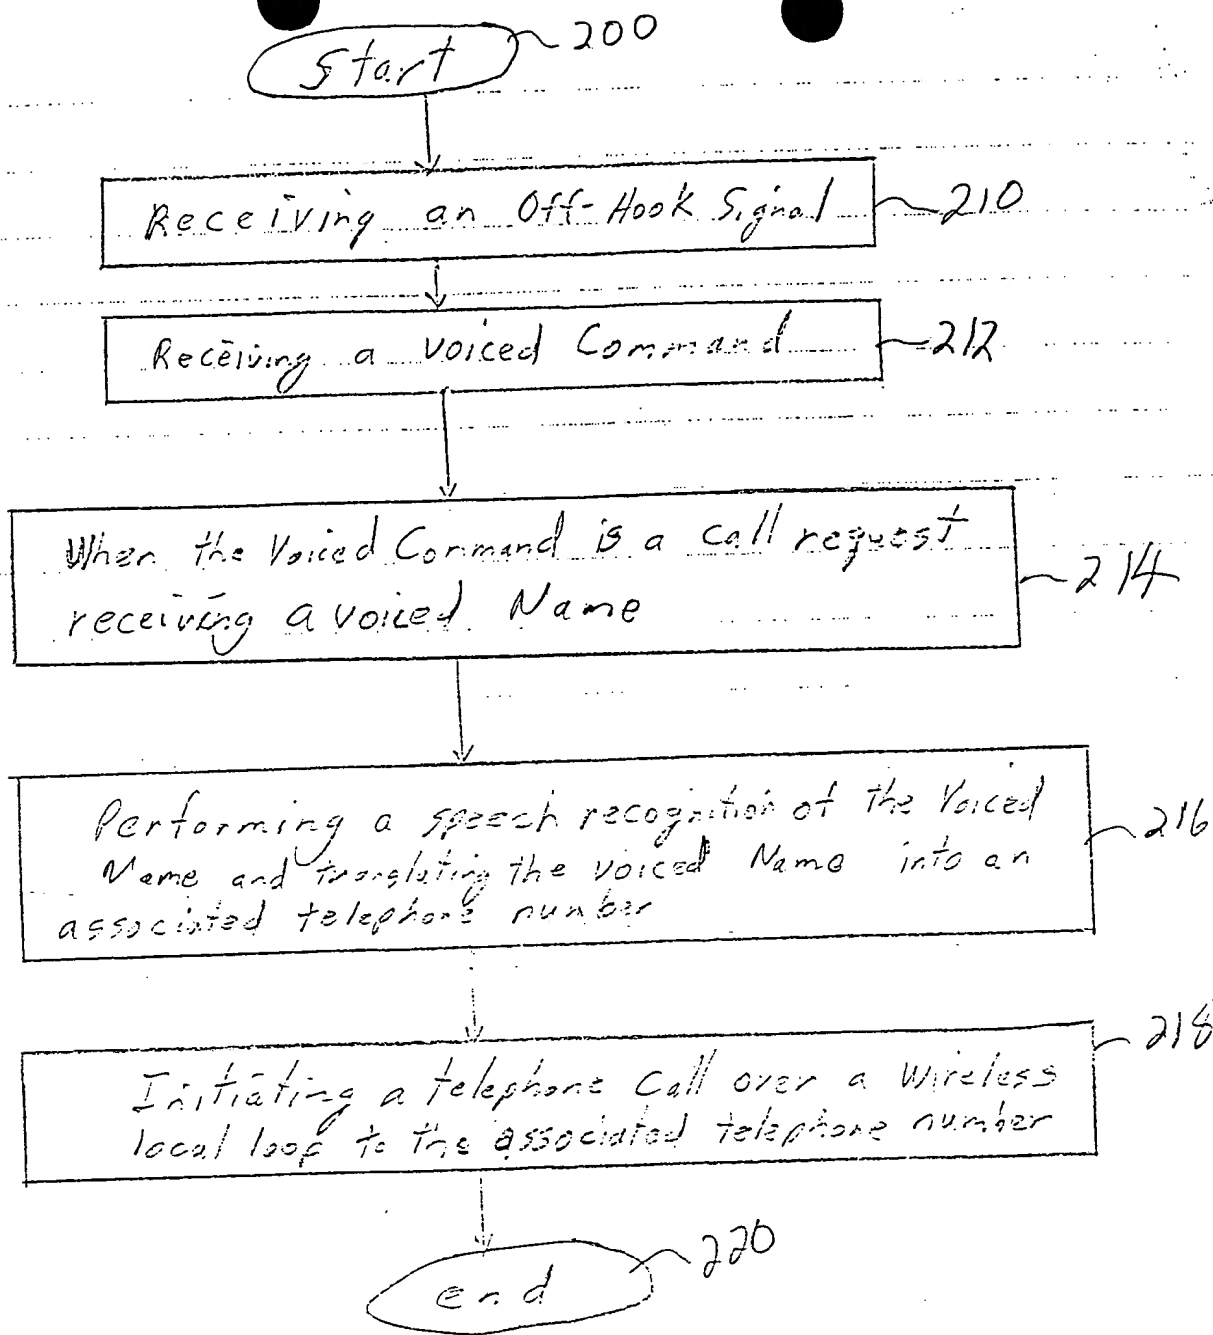 Start 200
Receiving an Off-Hook Signal 210
Receiving a Voiced Command 212
When the Voiced Command is a call request
receiving a voiced Name 214
Performing a speech recognition of the Voiced
Name and translating the voiced Name into an 216
associated telephone number
Initiating a telephone Call over a Wireless 218
local loop to the associated telephone number
end 220